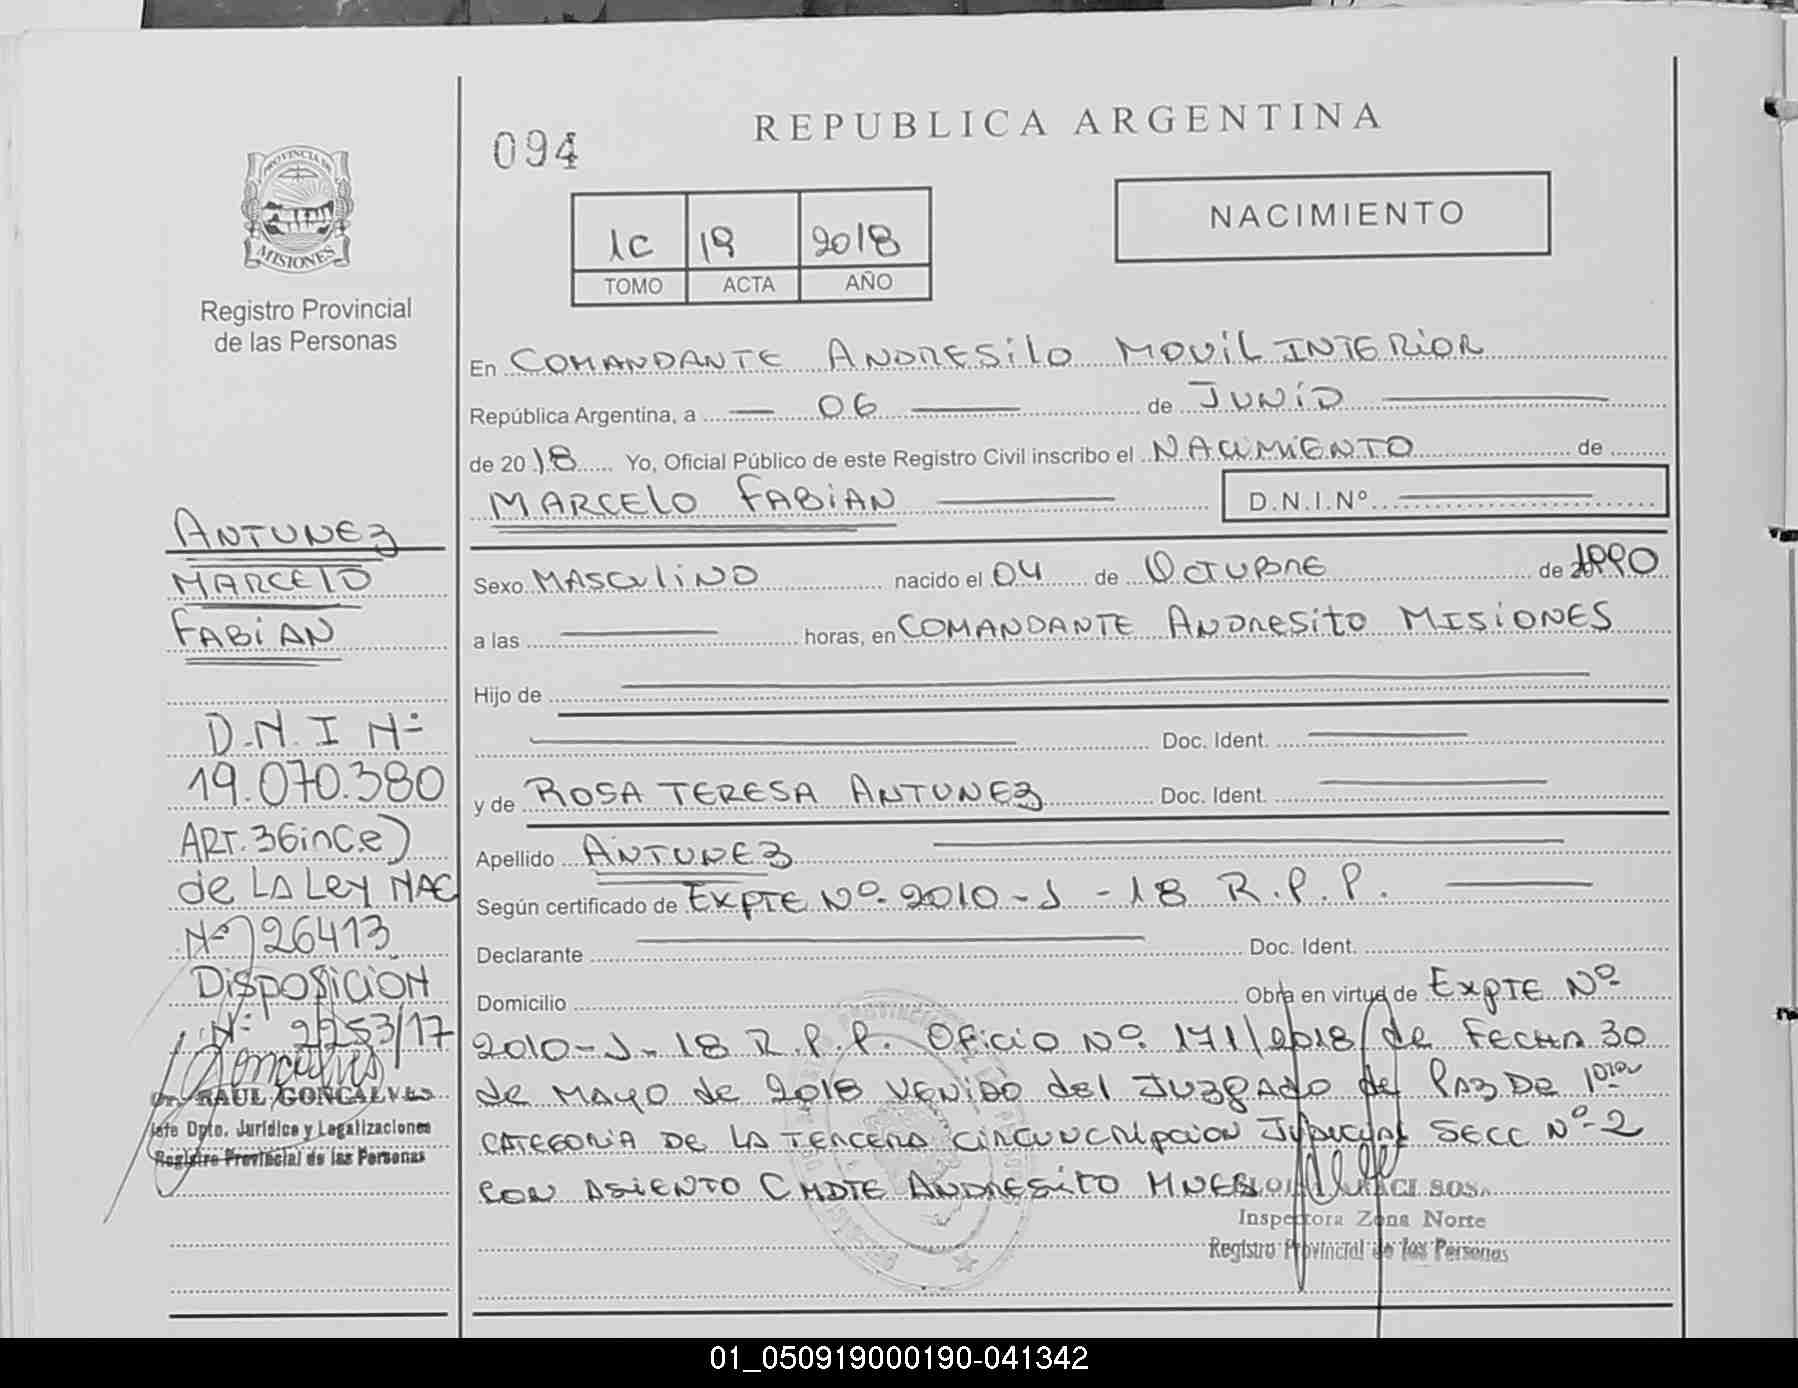 094
REPUBLICA ARGENTINA
NACIMIENTO
1C 19 2018
TOMO ACTA AÑO
PROVINCIA DE
MISIONES
Registro Provincial
de las Personas
En COMANDANTE ANDRESito MOVIL INTERIOR
República Argentina, a 06 de JUNIO
de 2018 Yo, Oficial Público de este Registro Civil inscribo el NACIMIENTO de
MARCELO FABIAN D.N.I.Nº
Sexo MASCULINO nacido el 04 de OCTUBRE de 1990
a las horas, en COMANDANTE ANDRESito MISIONES
Hijo de
Doc. Ident.
y de ROSA TERESA ANTUNEZ Doc. Ident.
Apellido ANTUNEZ
Según certificado de EXPTE Nº 2010-J-18 R.P.P.
Declarante Doc. Ident.
Domicilio Obra en virtud de EXPTE Nº
2010-J-18 R.P.P. OFICIO Nº 171/2018 de FECHA 30
de MAYO de 2018 VENIDO del JUZGADO de PAZ DE 1era
CATEGORIA DE LA TERCERA CIRCUNCRIPCION JUDICIAL SECC Nº 2
CON ASIENTO CMDTE ANDRESITO MNES
SOSA
Inspectora Zona Norte
Registro Provincial de las Personas
ANTUNEZ
MARCELO
FABIAN
D.N.I Nº
19.070.380
ART. 36 inc e)
de LA Ley NAC
Nº 26413
DISPOSICION
Nº 2253/17
Dr. RAUL GONCALVES
Jefe Dpto. Jurídico y Legalizaciones
Registro Provincial de las Personas
01_050919000190-041342